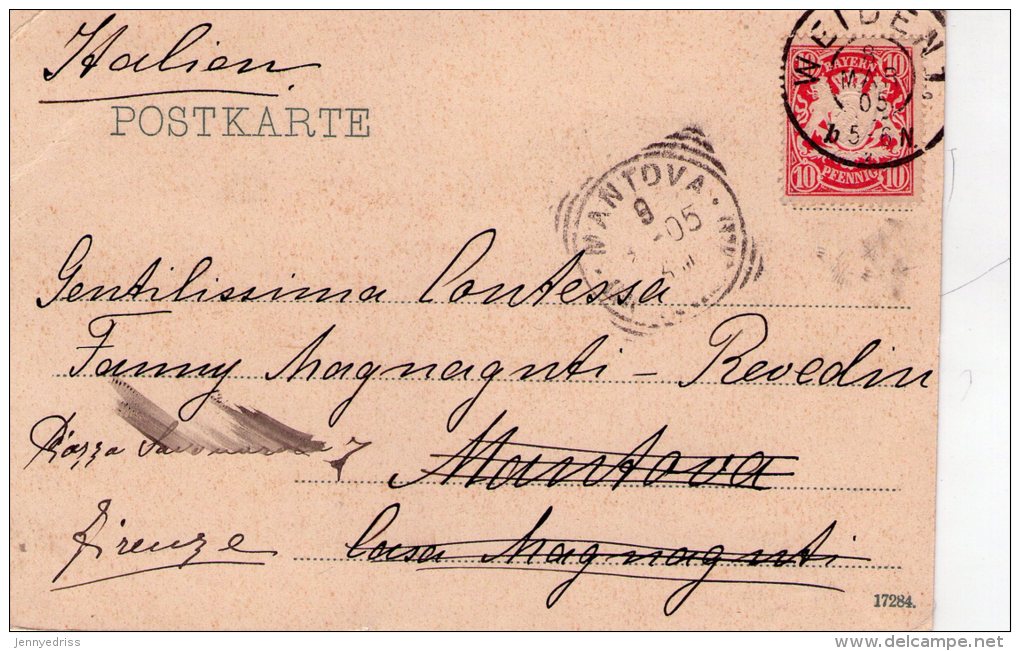 Italien
POSTKARTE
WEIDEN 1
8
MAI
05
5-6 N
10 BAYERN 10
10 PFENNIG 10
MANTOVA
9
05
Gentilissima Contessa
Fanny Magnagnti - Revedin
Piazza 7
Mantova
Firenze
Casa Magnagnti
17284.
jennyedriss
www.delcampe.net